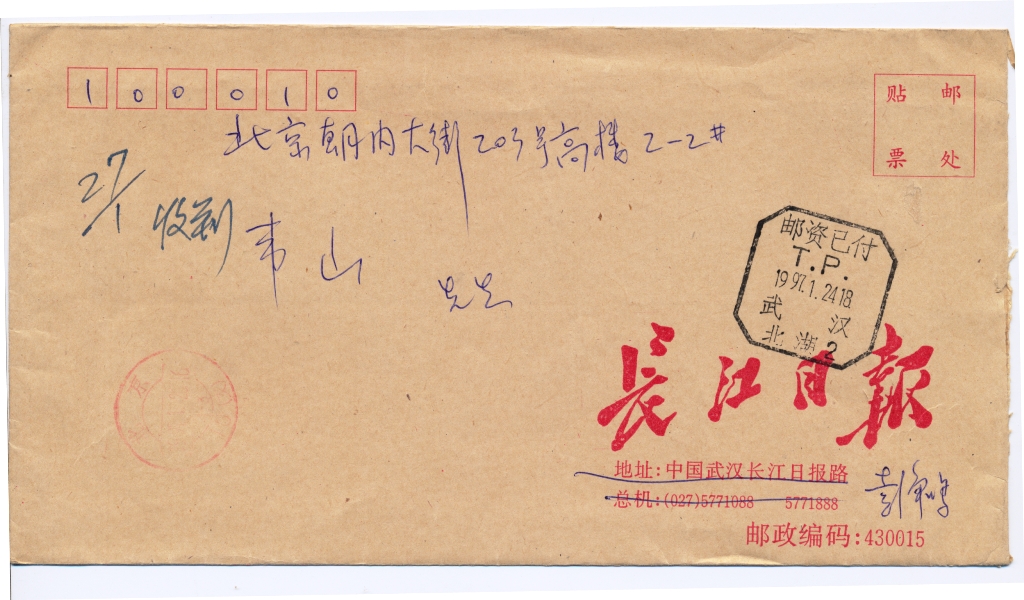 100010
贴 邮
票 处
北京朝内大街203号高楼2-2#
27/1 收到
韦 山 先生
邮资已付
T.P.
1997.1.24 18
武 汉
北湖 2
長江日報
地址:中国武汉长江日报路
总机:(027)5771088 5771888
邮政编码:430015